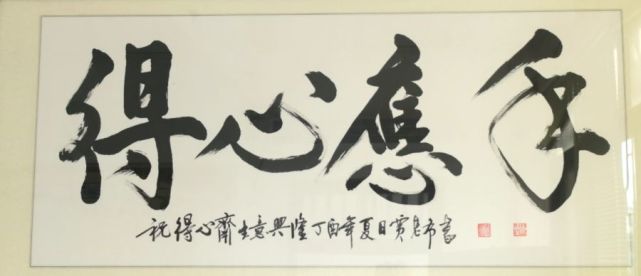 得心應手
祝得心齋生意興隆丁酉年夏日賈書